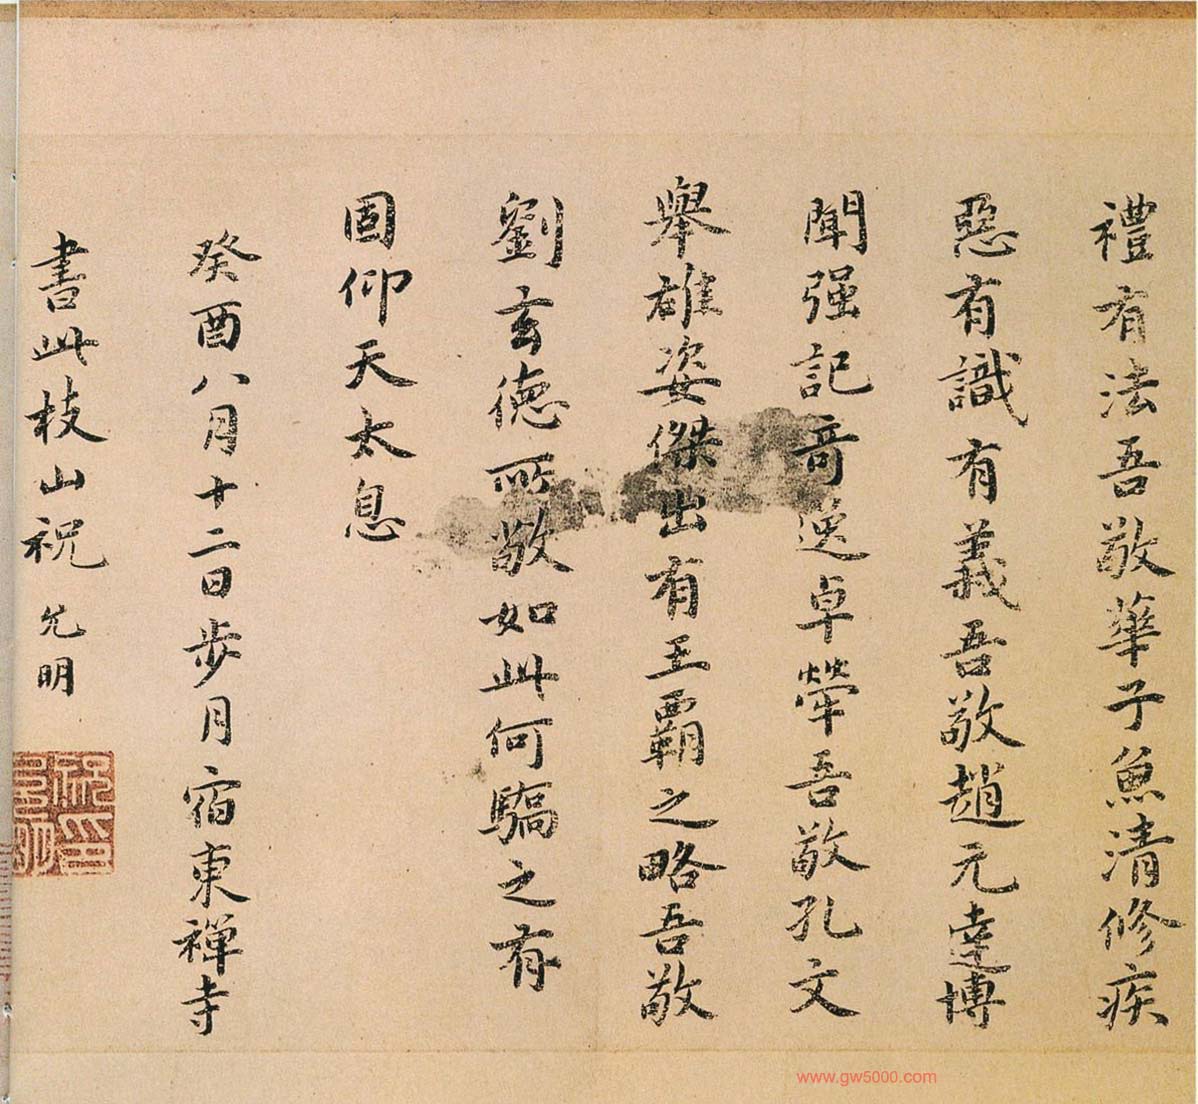 禮有法吾敬華子魚清修疾
惡有識有義吾敬趙元達博
聞强記奇逸卓犖吾敬孔文
舉雄姿傑出有王霸之略吾敬
劉玄德所敬如此何驕之有
固仰天太息
癸酉八月十二日步月宿東禪寺
書此枝山祝允明
祝印
允明
www.gw5000.com